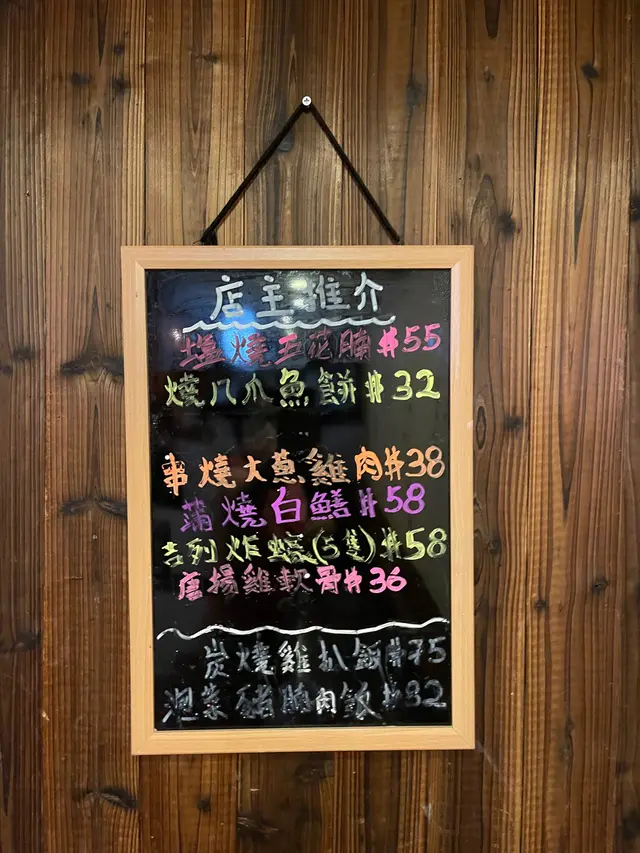 店主推介
塩燒五花腩 $55
燒八爪魚餅 $32
串燒大蔥雞肉 $38
蒲燒白鱔 $58
吉列炸蠔(5隻) $58
唐揚雞軟骨 $36
炭燒雞扒飯 $75
泡菜豬腩肉飯 $82